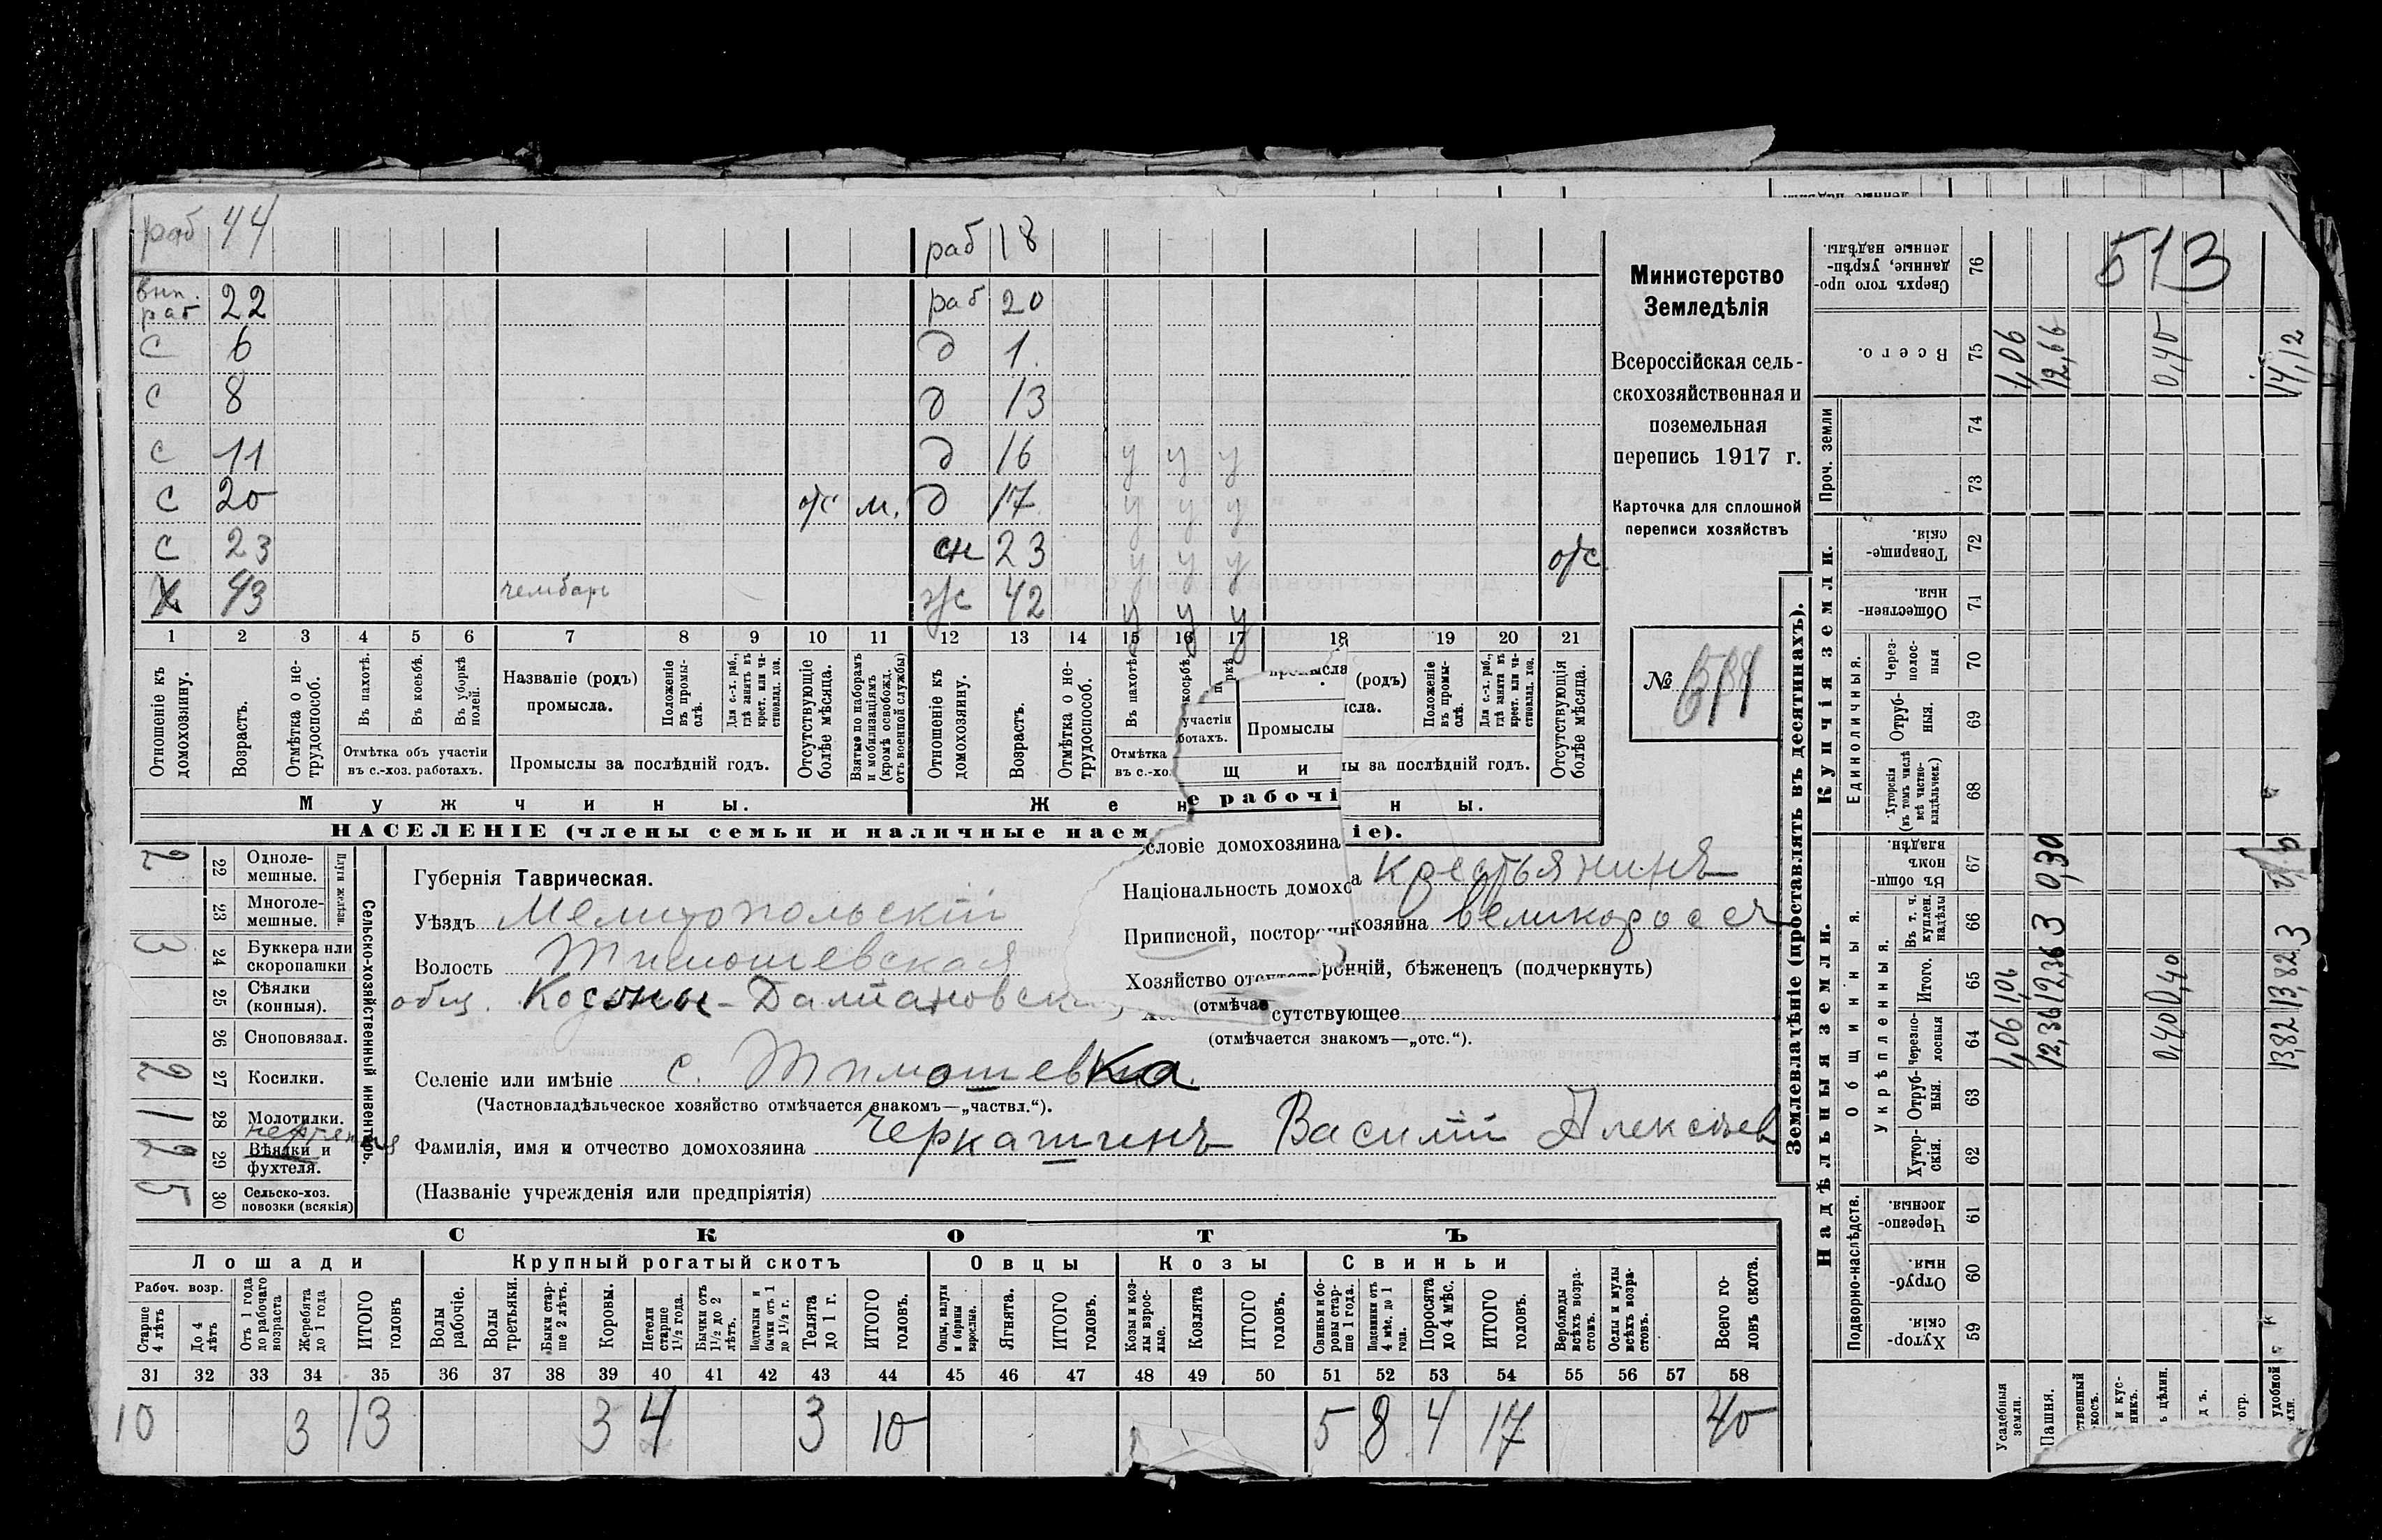 раб 44 раб 18
раб 22 раб 20
с 6 д 1
с 8 д 13
с 11 д 16 у у у
с 20 о/с м. д 17 у у у
с 23 сн 23 у у у о/с
х 43 ж 42 у у у
1 2 3 4 5 6 7 8 9 10 11 12 13 14 15 16 17 18 19 20 21
Отношеніе къ домохозяину.
Возрастъ.
Отмѣтка о нетрудоспособ.
Въ пахотѣ.
Въ косьбѣ.
Въ уборкѣ полей.
Отмѣтка объ участіи
въ с.-хоз. работахъ.
Названіе (родъ)
промысла.
Положеніе въ промыслѣ.
Для с.-х. раб., гдѣ занятъ въ крест. или частновлад. хоз.
Промыслы за послѣдній годъ.
Отсутствующіе болѣе мѣсяца.
Взятые по наборамъ и мобилизаціямъ (кромѣ освобожд. отъ военной службы)
Отношеніе къ домохозяину.
Возрастъ.
Отмѣтка о нетрудоспособ.
Въ пахотѣ
косьбѣ.
Отмѣтка
въ с.-хо
участіи
ботахъ.
Промыслы
(родъ)
Положеніе въ промыслѣ.
Для с.-х. раб., гдѣ занята въ крест. или частновлад. хоз.
за послѣдній годъ.
Отсутствующія болѣе мѣсяца.
щ и
е рабочі
Мужчины.
Же н ны.
НАСЕЛЕНІЕ (члены семьи и наличные наем іе).
Министерство
Земледѣлія
Всероссійская сель-
скохозяйственная и
поземельная
перепись 1917 г.
Карточка для сплошной
переписи хозяйствъ
№
Сельско-хозяйственный инвентарь.
Плуги желѣзн.
2 22 Одноле-
мешные.
23 Многоле-
мешные.
3 24 Буккера или
скоропашки
25 Сѣялки
(конныя).
26 Сноповязал.
2 27 Косилки.
1 28 Молотилки.
2 29 Вѣялки и
фухтеля.
5 30 Сельско-хоз.
повозки (всякія)
Губернія Таврическая.
Уѣздъ Мелитопольскій
Волость Тимошевская
общ.
Селеніе или имѣніе с. Тимошевка
(Частновладѣльческое хозяйство отмѣчается знакомъ—„частвл.“).
Фамилія, имя и отчество домохозяина Черкашинъ Василій Алексѣев
(Названіе учрежденія или предпріятія)
словіе домохозяина
Національность домохо а крестьянинъ
хозяина великоросс
Приписной, посторонні
ронній, бѣженецъ (подчеркнуть)
Хозяйство
(отмѣчае
сутствующее
(отмѣчается знакомъ—„отс.“).
СКОТЪ
Лошади Крупный рогатый скотъ Овцы Козы Свиньи
Рабоч. возр.
Старше 4 лѣтъ
До 4 лѣтъ
Отъ 1 года до рабочаго возраста
Жеребята до 1 года
ИТОГО головъ
Волы рабочіе.
Волы третьяки.
Быки старше 2 лѣтъ.
Коровы.
Нетели старше 1½ года.
Бычки отъ 1½ до 2 лѣтъ.
Подтелки и бычки отъ 1 до 1½ г.
Телята до 1 г.
ИТОГО головъ.
Овцы, валухи и бараны взрослые.
Ягнята.
ИТОГО головъ.
Козы и козлы взрослые.
Козлята
ИТОГО головъ.
Свиньи и боровы старше 1 года.
Подсвинки отъ 4 мѣс. до 1 года.
Поросята до 4 мѣс.
ИТОГО головъ.
Верблюды всѣхъ возрастовъ.
Ослы и мулы всѣхъ возрастовъ.
Всего головъ скота.
31 32 33 34 35 36 37 38 39 40 41 42 43 44 45 46 47 48 49 50 51 52 53 54 55 56 57 58
10 3 13 3 4 3 10 5 8 4 17 40
Землевладѣніе (проставлять въ десятинахъ).
513
Сверхъ того проданные, укрѣпленные надѣлы. 76
Всего. 75 1,06 12,66 0,40 14,12
Проч. земли 74
73
Купчія земли.
Товарищескія. 72
Общественныя. 71
Единоличныя.
Черезполосныя 70
Отрубныя. 69
Хуторскія (въ томъ числѣ всѣ частновладѣльческ.) 68
Надѣльныя земли.
Общинныя.
Въ общинномъ владѣн. 67 0,30
Укрѣпленныя.
Въ т. ч. куплен. надѣлы 66 3 3
Итого. 65 1,06 12,36 0,40 13,82
Черезполосныя 64 1,06 12,36 0,40 13,82
Отрубныя. 63
Хуторскія. 62
Подворно-наслѣдств.
Черезполосныя. 61
Отрубныя. 60
Хуторскія. 59
Усадебныя земли.
Пашня.
ственный
кось.
и кус-
никъ.
ь цѣлин.
дъ.
огр.
удобной